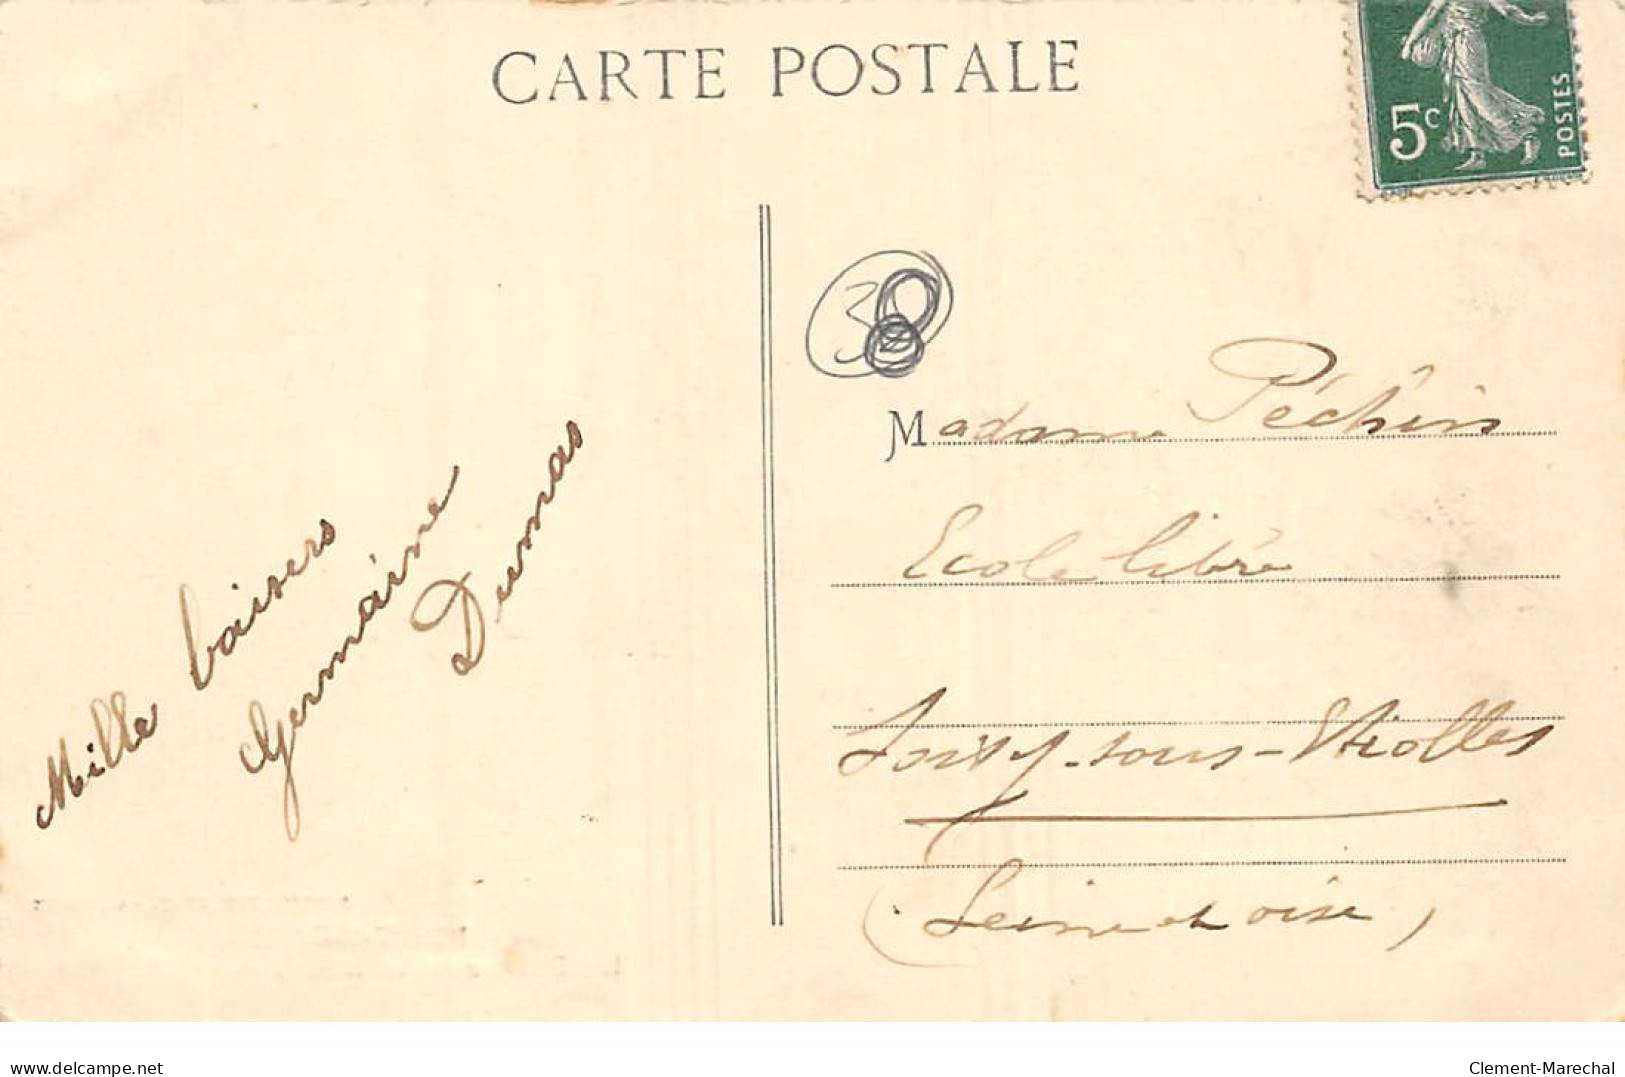 CARTE POSTALE
5c
POSTES
38
Mille baisers
Germaine
Dumas
Madame Péchin
Ecole libre
Soisy-sous-Etiolles
(Seine et oise)
delcampe.net
Clement-Marechal